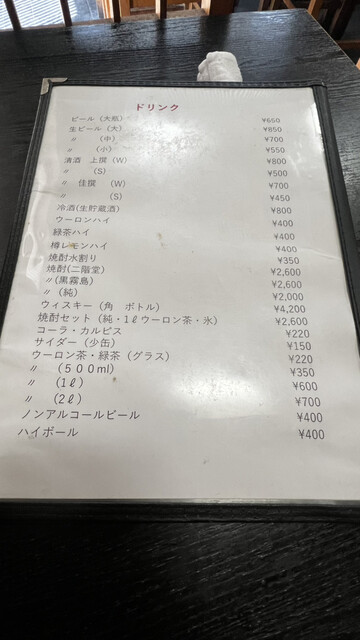 ドリンク
ビール（大瓶） ¥650
生ビール（大） ¥850
〃　　（中） ¥700
〃　　（小） ¥550
清酒　上撰（W） ¥800
〃　　　（S） ¥500
〃　佳撰　（W） ¥700
〃　　　　（S） ¥450
冷酒(生貯蔵酒） ¥800
ウーロンハイ ¥400
緑茶ハイ ¥400
樽レモンハイ ¥400
焼酎水割り ¥350
焼酎(二階堂） ¥2,600
〃(黒霧島） ¥2,600
〃（純） ¥2,000
ウィスキー（角　ボトル） ¥4,200
焼酎セット（純・1ℓウーロン茶・氷） ¥2,600
コーラ・カルピス ¥220
サイダー（少缶） ¥150
ウーロン茶・緑茶（グラス） ¥220
〃　　（５００ml） ¥350
〃　　（1ℓ） ¥600
〃　　（2ℓ） ¥700
ノンアルコールビール ¥400
ハイボール ¥400